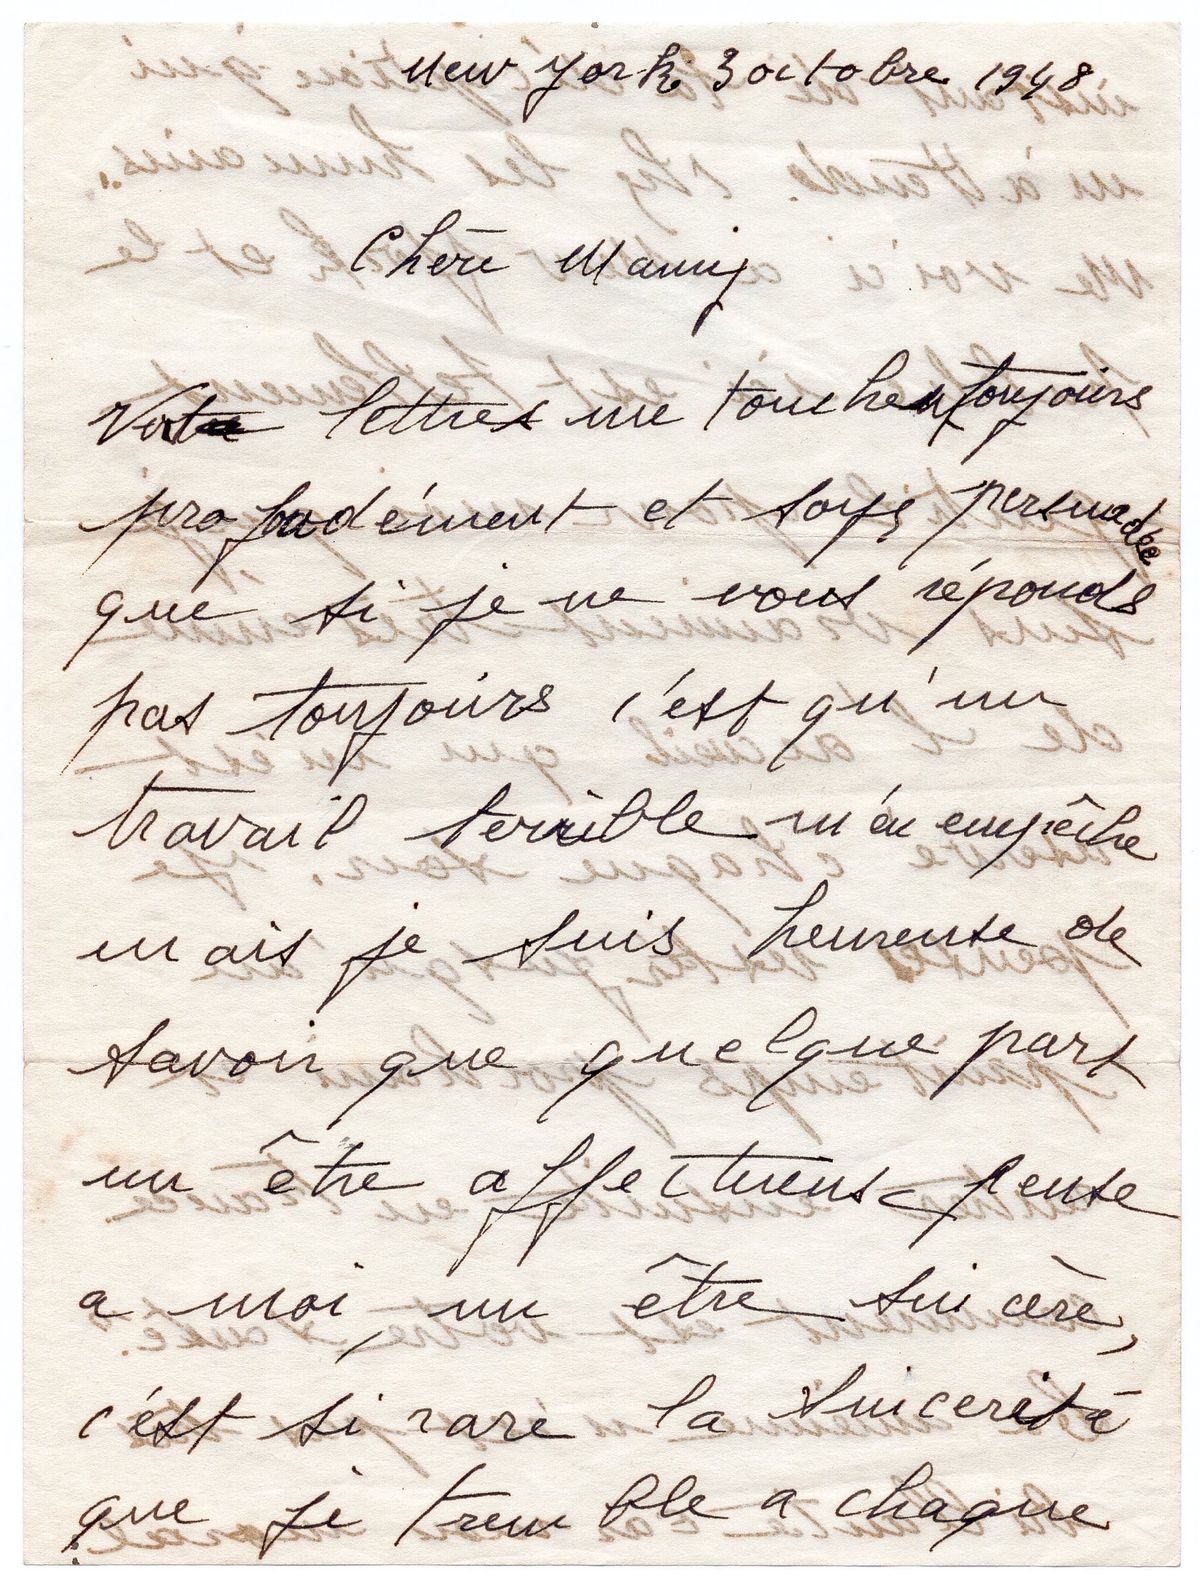 New York 3 octobre 1948
Chère Mamy
Vos lettres me touchent toujours
profondément et soyez persuadée
que si je ne vous réponds
pas toujours c'est qu'un
travail terrible m'en empêche
mais je suis heureuse de
savoir que quelque part
un être affectueux pense
a moi, un être sincère,
c'est si rare la sincerité
que je tremble a chaque